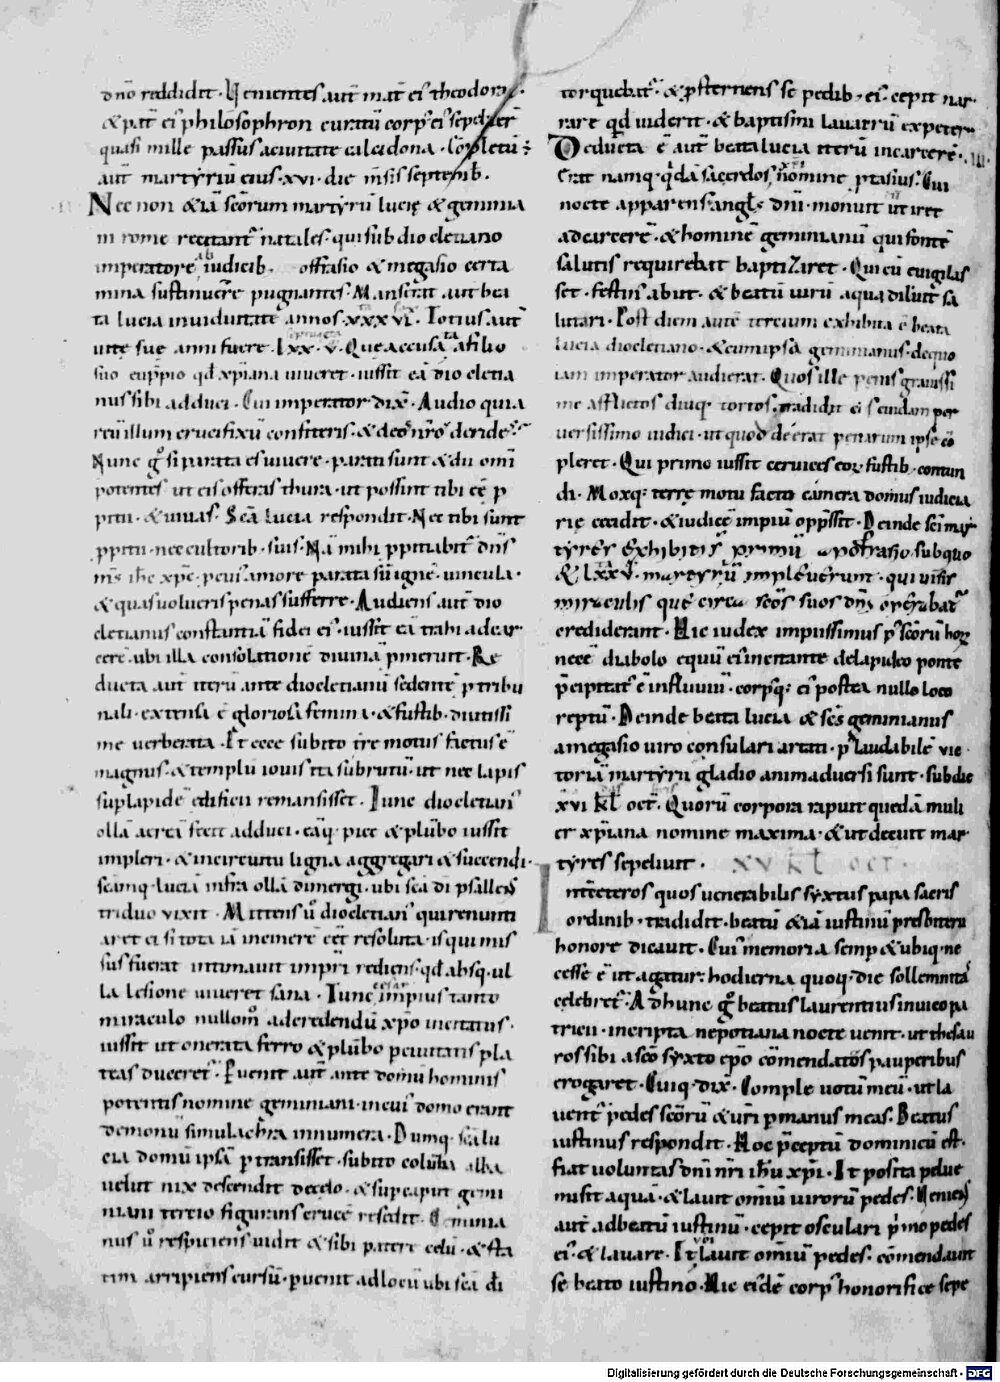 dño reddidit · Uenientes aut̄ mat̄ ei᷒ theodora
& pat̄ ei᷒ philosophron curatū corp᷒ ei᷒ sepelier̄
quasi mille passus a ciuitate calcidona · Cōpletū ē
aut̄ martyriū eius · xvi · die m̄sis septemb̄ ·
Nec non & iā sc̄orum martyrū lucię & geminia
ni rome recitant᷒ natales · qui sub dio cletiano
imperatore ab iudicib; offrasio & megasio certa
mina sustinuere pugnantes · Manserat aut̄ bea
ta lucia in uiduitate annos · xxx vi · Totius aut̄
uite sue anni fuere · lxx · v · Que accusata a filio
suo eup̄pio qd̄ xp̄iana uiueret · iussit eā dio cletia
nus sibi adduci · Cui imperator dix̄ · Audio quia
reū illum crucifixū confiteris · & deos nr̄os derides
Nunc g° si parata es uiuere · parati sunt & dii omī
potentes ut eis offeras thura · ut possint tibi eē p
pitii · & uiuas · Sc̄a lucia respondit · Nec tibi sunt
ppitii · nec cultorib; suis · Nā mihi ppitiabit᷒ dn̄s
m̄s ih̄c xp̄c · p cui᷒ amore parata sū igne uincula ·
& quas uolueris penas sufferre · Audiens aut̄ dio
cletianus constantiā fidei ei᷒ · iussit eā trahi ad car
cerē · ubi illa consolationē diuinā pmeruit · Re
ducta aut̄ iterū ante diocletianū sedentē p tribu
nali · extensa ē gloriosa femina · & fustib; diutissi
me uerberata · Et ecce subito tr̄e motus factus ē
magnus · & templū iouis ita subrutū · ut nec lapis
sup lapidē edificii remansisset · Tunc diocletian᷒
ollā aereā fecit adduci · eāq; pice & plūbo iussit
impleri · & in circuitu ligna aggregari & succendi ·
sc̄amq; luciā infra ollā dimergi · ubi sc̄a dī psallens
triduo vixit · Mittens ū diocletian᷒ qui renunti
aret ei si tota iā in cinerē eēt resoluta · is qui mis
sus fuerat intimauit impr̄i rediens · qd̄ absq; ul
la lesione uiueret sana · Tunc cesar impius tanto
miraculo nullom° ad credendū xp̄o incitatus ·
iussit ut onerata ferro & plūbo p ciuitatis pla
teas duceret᷒ · Puenit aut̄ ante domū hominis
potentis nomine geminiani · in cui᷒ domo erant
demonū simulachra innumera · Dumq; sc̄a lu
cia domū ipsā p transisset · subito colūba alba
uelut nix descendit de celo · & sup caput gemi
niani tertio figurans crucē resedit · Geminia
nus ū respiciens uidit & sibi patere celū · & sta
tim arripiens cursū · puenit ad locū ubi sc̄a dī
torquebat᷒ · & p̄sternens se pedib; ei᷒ cepit nar
rare qd̄ uiderit · & baptismi lauatrū expetere
Deducta ē aut̄ beata lucia iterū in carcerē ·
Erat namq; q̄dā sacerdos xp̄i nomine p̄tasius · Cui
nocte apparens angl̄s dn̄i · monuit ut iret
ad carcerē · & hominē geminianū qui fontē
salutis requirebat baptizaret · Qui cū euigilas
set · festin᷒ abiit · & beatū uirū aqua diluit sa
lutari · Post diem autē tercium exhibita ē beata
lucia diocletiano · & cum ipsa geminianus · de quo
iam imperator audierat · Quos ille penis grauissi
me afflictos diuq; tortos · tradidit ei᷒ cuidam per
uersissimo iudici · ut quod deerat penarum ipse cō
pleret · Qui primo iussit ceruices eor̄ fustib; contun
di · Mox q; terrę motu facto camera domus iudicia
rię cecidit · & iudicē impiū opp̄ssit · Deinde sc̄i mar
tyres exhibiti s̄ primū apofrasio sub quo
& lxxv · martyrū impleuerunt · qui uisis
miraculis quę circa sc̄os suos dn̄s operabat᷒
crediderant · Hic iudex impiissimus p᷒ sc̄orū hor̄
necē diabolo equū ei᷒ incitante de lapideo ponte
p̄cipitat᷒ ē in fluuiū · corp᷒q; ei᷒ postea nullo loco
reptū · Deinde beata lucia & sc̄s geminianus
a megasio uiro consulari artati · p᷒ laudabilē vic
toriā martyrii gladio animaduersi sunt · sub die
xvi kl̄ oct̄ · Quorū corpora rapuit quedā muli
er xp̄iana nomine maxima · & ut decuit mar
tyres sepeliuit · XV KL OCT ·
Inter ceteros quos uenerabilis syxtus papa sacris
ordinib; tradidit · beatū & iā iustinū presbiterii
honore dicauit · Cui᷒ memoria semp & ubiq; ne
cesse ē ut agatur · hodierna quoq; die sollemnitas
celebret᷒ · Ad hunc g° beatus laurentius in uico pa
tricii · in cripta nepotiana nocte uenit · ut thesau
ros sibi a sc̄o syxto ep̄o cōmendatos pauperibus
erogaret · Cuiq; dix̄ · Comple uotū meū · ut la
uent᷒ pedes sc̄orū & ur̄i p manus meas · Beatus
iustinus respondit · Hoc p̄ceptū dominicū est ·
fiat uoluntas dn̄i nr̄i ih̄u xp̄i · Et posita pelue
misit aquā · & lauit omniū uirorū pedes · Ueniens
aut̄ ad beatū iustinū · cepit osculari p̄mo pedes
ei᷒ & lauare · Et ut lauit omniū pedes · cōmendauit
se beato iustino · Hic eidē corp᷒ honorifice sepe
Digitalisierung gefördert durch die Deutsche Forschungsgemeinschaft · DFG